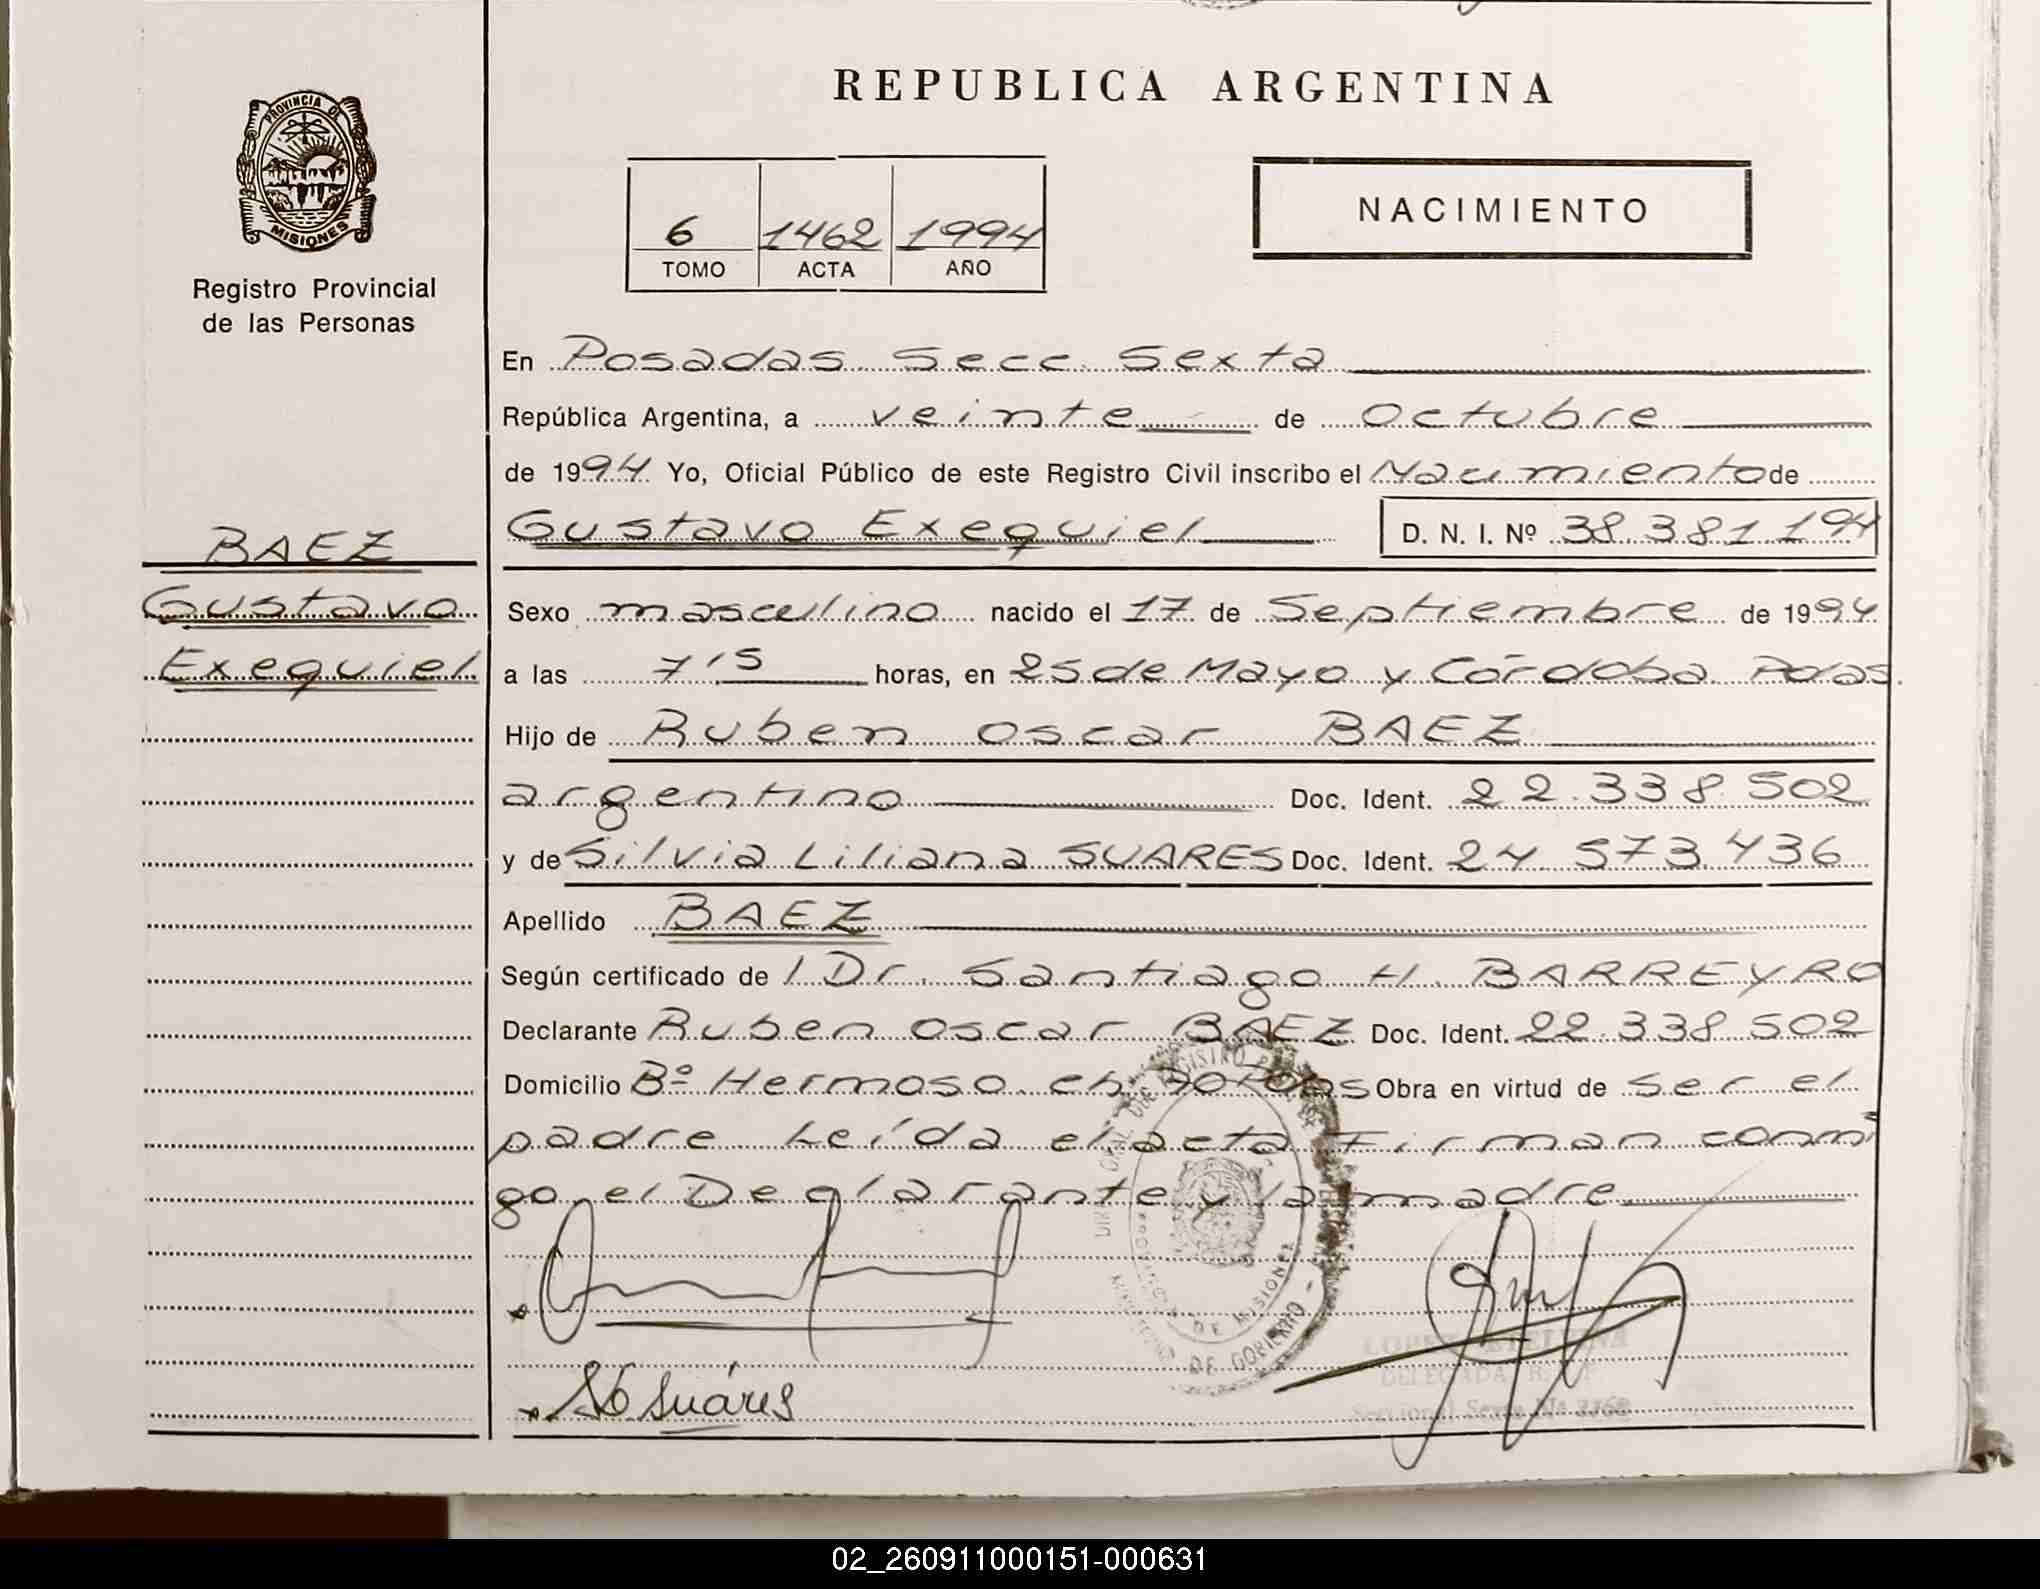 REPUBLICA ARGENTINA
PROVINCIA DE
MISIONES
Registro Provincial
de las Personas
6 1462 1994
TOMO ACTA AÑO
NACIMIENTO
En Posadas Secc. Sexta
República Argentina, a veinte de Octubre
de 1994 Yo, Oficial Público de este Registro Civil inscribo el Nacimiento de
Gustavo Exequiel D. N. I. Nº 38.381.194
BAEZ
Gustavo
Exequiel
Sexo masculino nacido el 17 de Septiembre de 1994
a las 7'15 horas, en 25 de Mayo y Córdoba Pdas.
Hijo de Ruben Oscar BAEZ
argentino Doc. Ident. 22.338.502
y de Silvia Liliana SUARES Doc. Ident. 24.573.436
Apellido BAEZ
Según certificado de / Dr. Santiago H. BARREYRO
Declarante Ruben Oscar BAEZ Doc. Ident. 22.338.502
Domicilio Bº Hermoso Obra en virtud de ser el
padre Leída el acta Firman conmi
go el Declarante y la madre
Suáres
DE MISIONES
DE GOBIERNO
DELEGADA
02_260911000151-000631